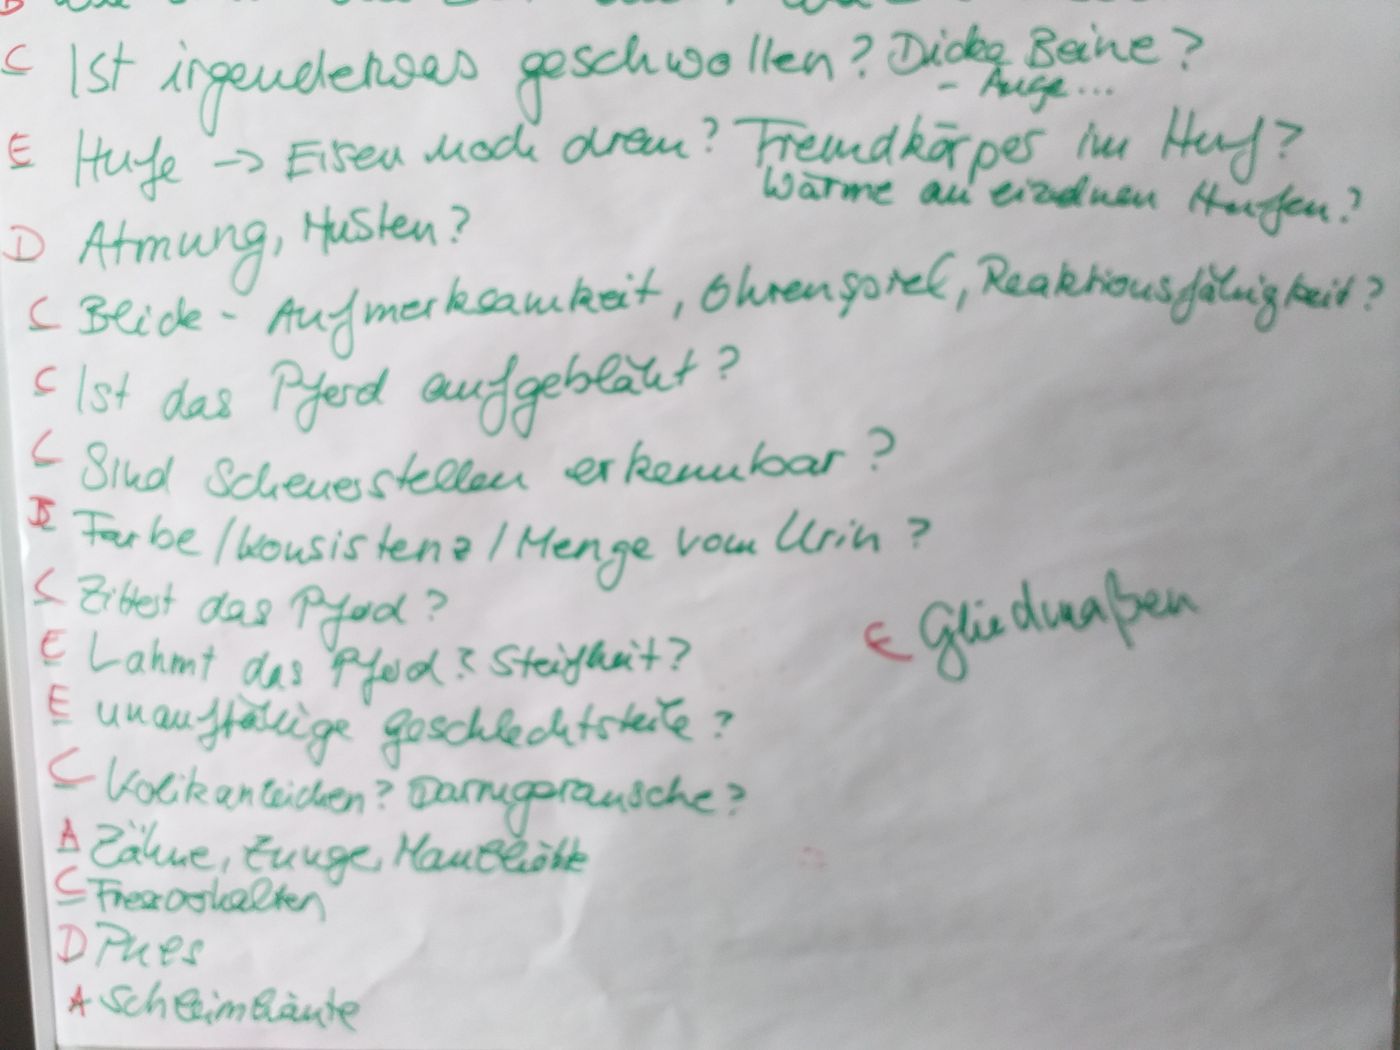 C Ist irgendetwas geschwollen? Dicke Beine?
- Auge...
E Hufe -> Eisen noch dran? Fremdkörper im Huf?
Wärme an einzelnen Hufen?
D Atmung, Husten?
C Blick - Aufmerksamkeit, Ohrenspiel, Reaktionsfähigkeit?
C Ist das Pferd aufgebläht?
C Sind Scheuerstellen erkennbar?
B Farbe/Konsistenz/Menge vom Urin?
C Zittert das Pferd?
E Gliedmaßen
E Lahmt das Pferd? Steifheit?
E unauffällige Geschlechtsteile?
C Kolikanzeichen? Darmgeräusche?
A Zähne, Zunge, Maulhöhle
C Fressverhalten
D Puls
A Schleimhäute